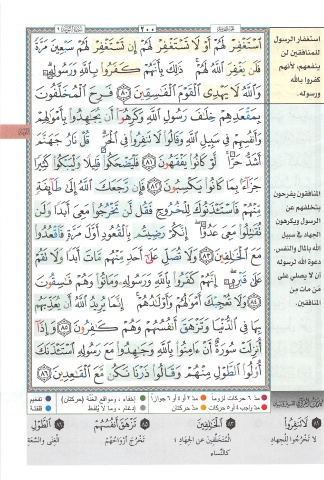 ٢٠٠
ٱسْتَغْفِرْ لَهُمْ أَوْ لَا تَسْتَغْفِرْ لَهُمْ إِن تَسْتَغْفِرْ لَهُمْ سَبْعِينَ مَرَّةً
فَلَن يَغْفِرَ ٱللَّهُ لَهُمْ ۚ ذَٰلِكَ بِأَنَّهُمْ كَفَرُوا۟ بِٱللَّهِ وَرَسُولِهِۦ ۗ
وَٱللَّهُ لَا يَهْدِى ٱلْقَوْمَ ٱلْفَـٰسِقِينَ ٨٠ فَرِحَ ٱلْمُخَلَّفُونَ
بِمَقْعَدِهِمْ خِلَـٰفَ رَسُولِ ٱللَّهِ وَكَرِهُوٓا۟ أَن يُجَـٰهِدُوا۟ بِأَمْوَٰلِهِمْ
وَأَنفُسِهِمْ فِى سَبِيلِ ٱللَّهِ وَقَالُوا۟ لَا تَنفِرُوا۟ فِى ٱلْحَرِّ ۗ قُلْ نَارُ جَهَنَّمَ
أَشَدُّ حَرًّا ۚ لَّوْ كَانُوا۟ يَفْقَهُونَ ٨١ فَلْيَضْحَكُوا۟ قَلِيلًا وَلْيَبْكُوا۟ كَثِيرًا
جَزَآءًۢ بِمَا كَانُوا۟ يَكْسِبُونَ ٨٢ فَإِن رَّجَعَكَ ٱللَّهُ إِلَىٰ طَآئِفَةٍ
مِّنْهُمْ فَٱسْتَـْٔذَنُوكَ لِلْخُرُوجِ فَقُل لَّن تَخْرُجُوا۟ مَعِىَ أَبَدًا وَلَن
تُقَـٰتِلُوا۟ مَعِىَ عَدُوًّا ۖ إِنَّكُمْ رَضِيتُم بِٱلْقُعُودِ أَوَّلَ مَرَّةٍ فَٱقْعُدُوا۟
مَعَ ٱلْخَـٰلِفِينَ ٨٣ وَلَا تُصَلِّ عَلَىٰٓ أَحَدٍ مِّنْهُم مَّاتَ أَبَدًا وَلَا تَقُمْ
عَلَىٰ قَبْرِهِۦٓ ۖ إِنَّهُمْ كَفَرُوا۟ بِٱللَّهِ وَرَسُولِهِۦ وَمَاتُوا۟ وَهُمْ فَـٰسِقُونَ
٨٤ وَلَا تُعْجِبْكَ أَمْوَٰلُهُمْ وَأَوْلَـٰدُهُمْ ۚ إِنَّمَا يُرِيدُ ٱللَّهُ أَن يُعَذِّبَهُم
بِهَا فِى ٱلدُّنْيَا وَتَزْهَقَ أَنفُسُهُمْ وَهُمْ كَـٰفِرُونَ ٨٥ وَإِذَآ
أُنزِلَتْ سُورَةٌ أَنْ ءَامِنُوا۟ بِٱللَّهِ وَجَـٰهِدُوا۟ مَعَ رَسُولِهِ ٱسْتَـْٔذَنَكَ
أُو۟لُوا۟ ٱلطَّوْلِ مِنْهُمْ وَقَالُوا۟ ذَرْنَا نَكُن مَّعَ ٱلْقَـٰعِدِينَ ٨٦
استغفار الرسول
للمنافقين لن
ينفعهم، لأنهم
كفروا بالله
ورسوله.
المنافقون يفرحون
بتخلفهم عن
الرسول ويكرهون
الجهاد في سبيل
الله بالمال والنفس.
دعوة الله لرسوله
أن لا يصلي على
من مات من
المنافقين.
مد ٦ حركات لزوماً مد ٢ أو ٤ أو ٦ جوازاً إخفاء، ومواقع الغنة (حركتان) تفخيم
مد واجب ٤ أو ٥ حركات مد حركتان إدغام، وما لا يلفظ قلقلة
٨١ لَا تَنفِرُوا۟ ٨٣ ٱلْخَـٰلِفِينَ ٨٥ تَزْهَقَ أَنفُسُهُمْ ٨٦ ٱلطَّوْلِ
لَا تَخْرُجُوا لِلْجِهَادِ الْمُتَخَلِّفِينَ عَنِ الْجِهَادِ تَخْرُجَ أَرْوَاحُهُمْ الْغِنَى وَالسَّعَةِ
كَالنِّسَاءِ